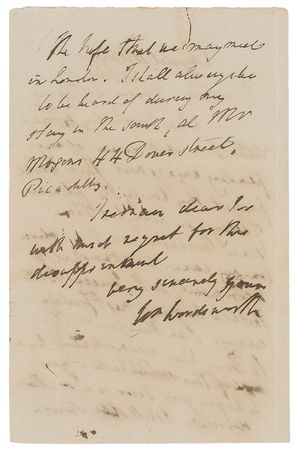 the hope that we may meet
in London. I shall always be
to be heard of during my
stay in the south, at Mr
Moxons 44 Dover Street,
Picadilly.
I remain dear Sir
with much regret for this
disappointment
very sincerely yours
Wm Wordsworth